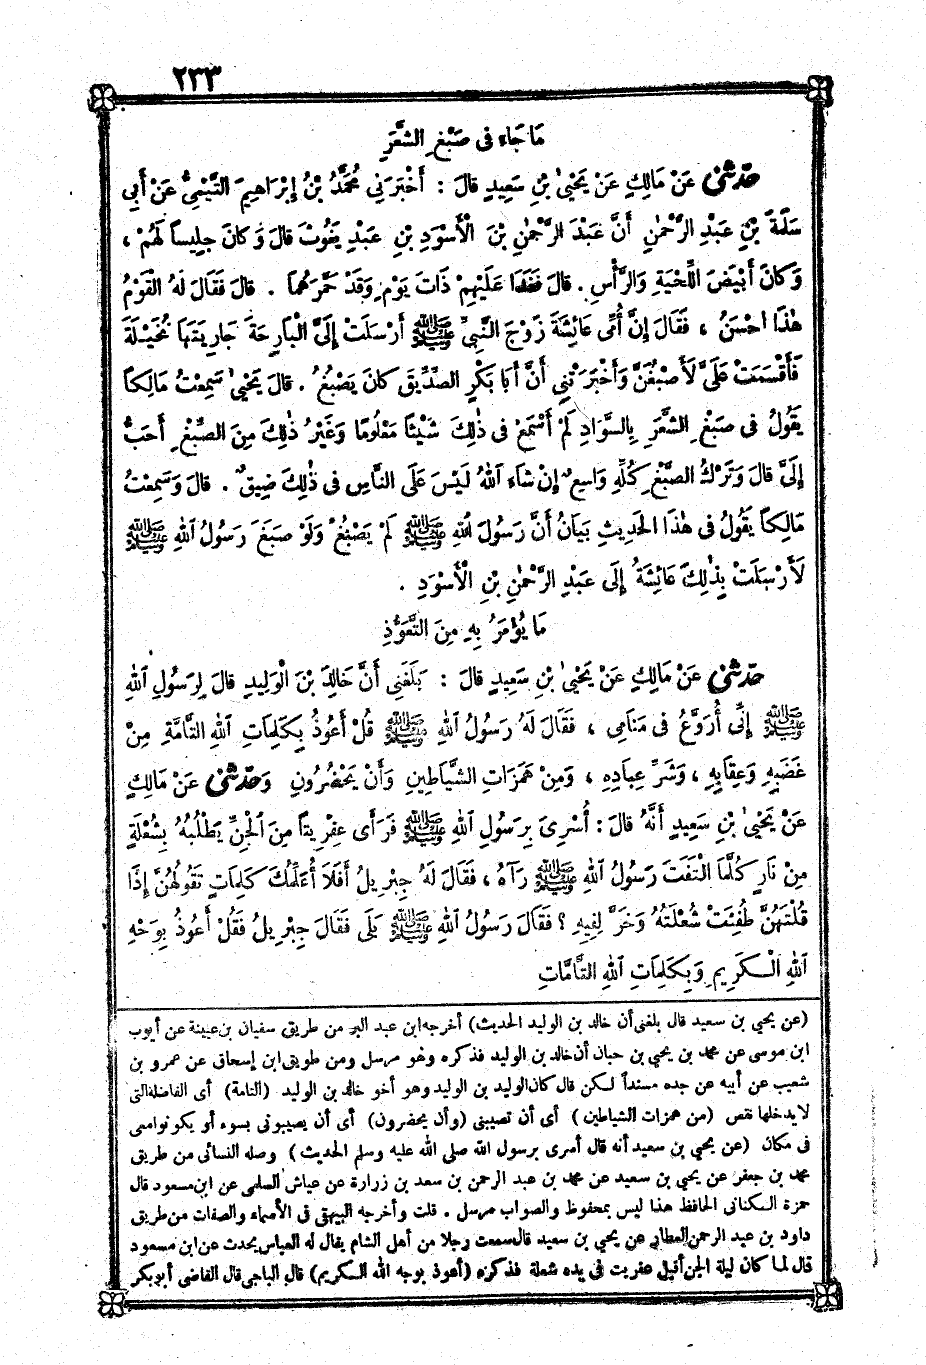 ٢٣٣
مَا جَاءَ فِى صَبْغِ الشَّعَرِ
حَدَّثَنِى عَنْ مَالِكٍ عَنْ يَحْيَىٰ بْنِ سَعِيدٍ قَالَ : أَخْبَرَنِى مُحَمَّدُ بْنُ إِبْرَاهِيمَ التَّيْمِىُّ عَنْ أَبِى
سَلَمَةَ بْنِ عَبْدِ الرَّحْمٰنِ أَنَّ عَبْدَ الرَّحْمٰنِ بْنَ الْأَسْوَدِ بْنِ عَبْدِ يَغُوثَ قَالَ وَكَانَ جَلِيسًا لَهُمْ ،
وَكَانَ أَبْيَضَ اللِّحْيَةِ وَالرَّأْسِ . قَالَ فَغَدَا عَلَيْهِمْ ذَاتَ يَوْمٍ وَقَدْ حَمَّرَهُمَا . قَالَ فَقَالَ لَهُ الْقَوْمُ
هٰذَا أَحْسَنُ ، فَقَالَ إِنَّ أُمِّى عَائِشَةَ زَوْجَ النَّبِىِّ ﷺ أَرْسَلَتْ إِلَىَّ الْبَارِحَةَ جَارِيَتَهَا نُخَيْلَةَ
فَأَقْسَمَتْ عَلَىَّ لَأَصْبُغَنَّ وَأَخْبَرَتْنِى أَنَّ أَبَا بَكْرٍ الصِّدِّيقَ كَانَ يَصْبُغُ . قَالَ يَحْيَىٰ سَمِعْتُ مَالِكًا
يَقُولُ فِى صَبْغِ الشَّعَرِ بِالسَّوَادِ لَمْ أَسْمَعْ فِى ذٰلِكَ شَيْئًا مَعْلُومًا وَغَيْرُ ذٰلِكَ مِنَ الصِّبْغِ أَحَبُّ
إِلَىَّ قَالَ وَتَرْكُ الصَّبْغِ كُلِّهِ وَاسِعٌ إِنْ شَاءَ اللهُ لَيْسَ عَلَى النَّاسِ فِى ذٰلِكَ ضِيقٌ . قَالَ وَسَمِعْتُ
مَالِكًا يَقُولُ فِى هٰذَا الْحَدِيثِ بَيَانُ أَنَّ رَسُولَ اللهِ ﷺ لَمْ يَصْبُغْ وَلَوْ صَبَغَ رَسُولُ اللهِ ﷺ
لَأَرْسَلَتْ بِذٰلِكَ عَائِشَةُ إِلَى عَبْدِ الرَّحْمٰنِ بْنِ الْأَسْوَدِ .
مَا يُؤْمَرُ بِهِ مِنَ التَّعَوُّذِ
حَدَّثَنِى عَنْ مَالِكٍ عَنْ يَحْيَىٰ بْنِ سَعِيدٍ قَالَ : بَلَغَنِى أَنَّ خَالِدَ بْنَ الْوَلِيدِ قَالَ لِرَسُولِ اللهِ
ﷺ إِنِّى أُرَوَّعُ فِى مَنَامِى ، فَقَالَ لَهُ رَسُولُ اللهِ ﷺ قُلْ أَعُوذُ بِكَلِمَاتِ اللهِ التَّامَّةِ مِنْ
غَضَبِهِ وَعِقَابِهِ ، وَشَرِّ عِبَادِهِ ، وَمِنْ هَمَزَاتِ الشَّيَاطِينِ وَأَنْ يَحْضُرُونِ وَحَدَّثَنِى عَنْ مَالِكٍ
عَنْ يَحْيَىٰ بْنِ سَعِيدٍ أَنَّهُ قَالَ : أُسْرِىَ بِرَسُولِ اللهِ ﷺ فَرَأَى عِفْرِيتًا مِنَ الْجِنِّ يَطْلُبُهُ بِشُعْلَةٍ
مِنْ نَارٍ كُلَّمَا الْتَفَتَ رَسُولُ اللهِ ﷺ رَآهُ ، فَقَالَ لَهُ جِبْرِيلُ أَفَلَا أُعَلِّمُكَ كَلِمَاتٍ تَقُولُهُنَّ إِذَا
قُلْتَهُنَّ طُفِئَتْ شُعْلَتُهُ وَخَرَّ لِفِيهِ ؟ فَقَالَ رَسُولُ اللهِ ﷺ بَلَى فَقَالَ جِبْرِيلُ فَقُلْ أَعُوذُ بِوَجْهِ
اللهِ الْكَرِيمِ وَبِكَلِمَاتِ اللهِ التَّامَّاتِ
(عن يحيى بن سعيد قال بلغنى أن خالد بن الوليد الحديث) أخرجه ابن عبد البر من طريق سفيان بن عيينة عن أيوب
ابن موسى عن محمد بن يحيى بن حبان أن خالد بن الوليد فذكره وهو مرسل ومن طريق ابن إسحاق عن عمرو بن
شعيب عن أبيه عن جده مسنداً لكن قال كان الوليد بن الوليد وهو أخو خالد بن الوليد (التامة) أى الفاضلة التى
لا يدخلها نقص (من همزات الشياطين) أى أن تصيبنى (وأن يحضرون) أى أن يصيبونى بسوء أو يكونوا معى
فى مكان (عن يحيى بن سعيد أنه قال أسرى برسول الله صلى الله عليه وسلم الحديث) وصله النسائى من طريق
محمد بن جعفر عن يحيى بن سعيد عن محمد بن عبد الرحمن بن سعد بن زرارة عن عياش السلمى عن ابن مسعود قال
حمزة الكنانى الحافظ هذا ليس بمحفوظ والصواب مرسل . قلت وأخرجه البيهقى فى الأسماء والصفات من طريق
داود بن عبد الرحمن العطار عن يحيى بن سعيد قال سمعت رجلا من أهل الشام يقال له العباس يحدث عن ابن مسعود
قال لما كان ليلة الجن أقبل عفريت فى يده شعلة فذكره (أعوذ بوجه الله الكريم) قال الباجى قال القاضى أبو بكر